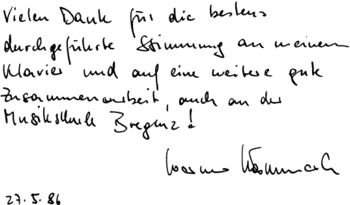 Vielen Dank für die bestens
durchgeführte Stimmung an meinem
Klavier und auf eine weitere gute
Zusammenarbeit, auch an der
Musikschule Bregenz!
27.5.86